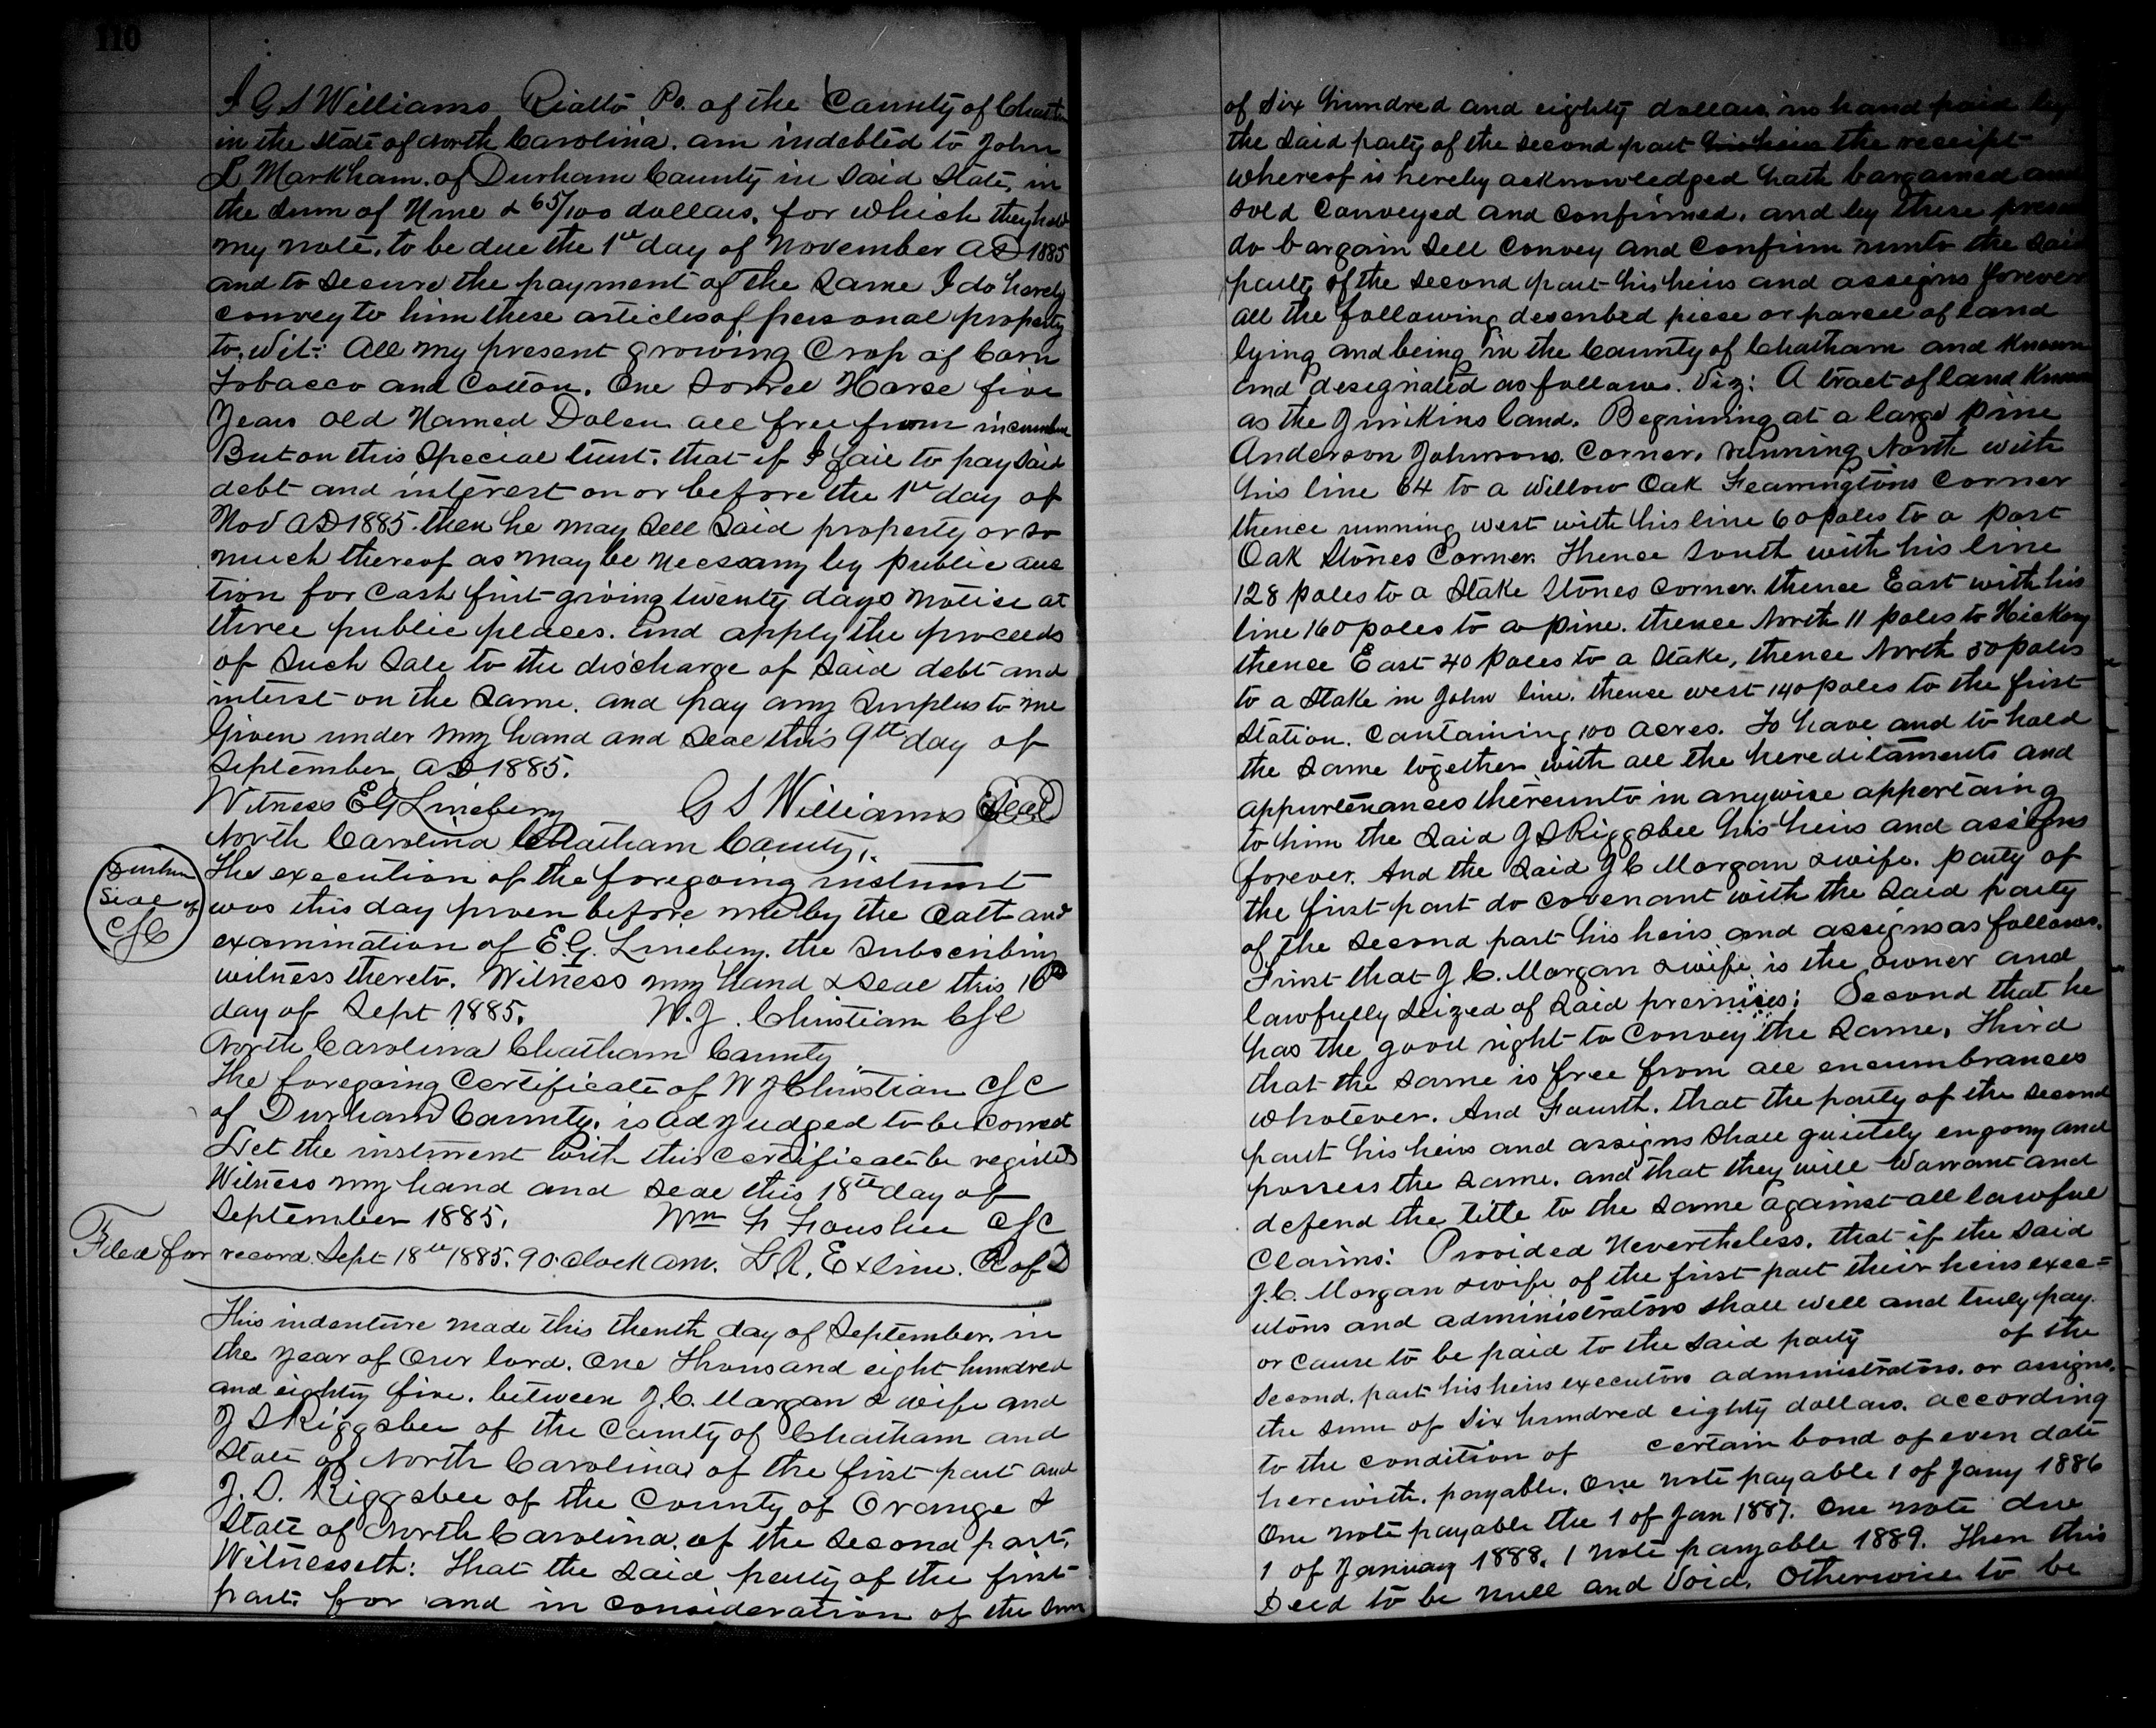 110
I G S Williams Rialto Po. of the County of Chatham
in the State of North Carolina. am indebted to John
L Markham. of Durham County in Said State, in
the sum of Nine & 65/100 dollars. for which they hold
my note. to be due the 1st day of November AD 1885
and to secure the payment of the same I do hereby
convey to him these articles of personal property
to. Wit: All my present growing Crop of Corn
Tobacco and Cotton. One Sorrel Horse five
Years old Named Dolen all free from
But on this Special trust. that if I fail to pay said
debt and interest on or before the 1st day of
Nov AD 1885. then he may sell said property or so
much thereof as may be necessary by public auc
tion for Cash first giving twenty days notice at
three public places. And apply the proceeds
of such sale to the discharge of said debt and
interst on the same. and pay any surplus to me
Given under my hand and seal this 9th day of
September AD 1885.
Witness E G Lineberry G S Williams Seal
North Carolina Chatham County,
Durham
Seal of
CSC
The execution of the foregoing instrument
was this day proven before me by the oath and
examination of E.G. Lineberry. the subscribing
witness thereto. Witness my hand & seal this 16
day of Sept 1885. W.J. Christian CSC
North Carolina Chatham County
The foregoing Certificate of W J Christian CSC
of Durham County. is adjudged to be correct
Let the instrment with this certificate be registed
Witness my hand and seal this 18th day of
September 1885. Wm F Foushee CSC
Filed for record Sept 18th 1885. 9 o.clock am. L.R. Exline. R of D
This indenture made this thenth day of September. in
the year of Our lord. One Thousand eight hundred
and eighty five. between J.C. Morgan & wife and
J S Riggsbee of the County of Chatham and
State of North Carolina of the first part and
J. S. Riggsbee of the County of Orange &
State of North Carolina. of the second part.
Witnesseth: That the said party of the first
part: for and in consideration of the sum
of Six hundred and eighty dollars in hand paid by
the said party of the second part his heirs the receipt
whereof is hereby acknowledged hath bargained and
sold Conveyed and confirmed. and by these presents
do bargain sell convey and confirm unto the said
party of the second part his heirs and assigns forever
all the following described piece or parcel of land
lying and being in the County of Chatham and known
and designated as follows. Viz: A tract of land known
as the Jinkins land. Beginning at a large pine
Anderson Johnsons. Corner. running North with
his line 64 to a Willow Oak Fearringtons Corner
thence running west with his line 60 poles to a Post
Oak Stones Corner. Thence South with his line
128 poles to a Stake Stones corner. thence East with his
line 160 poles to a pine. thence North 11 poles to Hickory
thence East 40 poles to a Stake, thence North 50 poles
to a Stake in John line. thence west 140 poles to the first
Station. Containing 100 acres. To have and to hold
the same together with all the hereditaments and
appurtenances thereunto in anywise appertaing
to him the said J S Riggsbee his heirs and assigns
forever. And the said J C Morgan & wife. party of
the first part do covenant with the said party
of the second part his heirs and assigns as follows.
First that J. C. Morgan & wife is the owner and
lawfully seized of said premises: Second that he
has the good right to convey the same. Third
that the same is free from all encumbrances
whatever. And Fourth. that the party of the second
part his heirs and assigns shall quietely enjoy and
possess the same. and that they will Warrant and
defend the title to the same against all lawful
Claims: Provided Nevertheless. that if the said
J.C. Morgan & wife of the first part their heirs exec=
utors and administrators shall well and truly pay.
or cause to be paid to the said party of the
Second. part his heirs executors administrators. or assigns.
the sum of Six hundred eighty dollars. according
to the condition of certain bond of even date
herewith. payable. One note payable 1 of Jany 1886
One note payable the 1 of Jan 1887. One note due
1 of January 1888. 1 note payable 1889. Then this
Deed to be null and Void. Otherwise to be